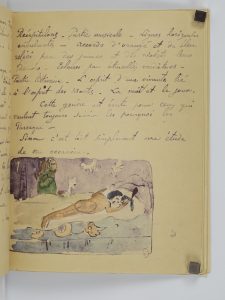 Récapitulons - Partie musicale - Lignes horizontales
ondulantes - accords d'orangé et de bleu
reliés par des jaunes et des violets leurs
Éclairés par étincelles verdâtres -
Partie littéraire - L'esprit d'une vivante lié
à l'esprit des morts. La nuit et le jour.
Cette genèse est écrite pour ceux qui
veulent toujours savoir les pourquoi les
parce que -
Sinon c'est tout simplement une étude
de nu océanien.